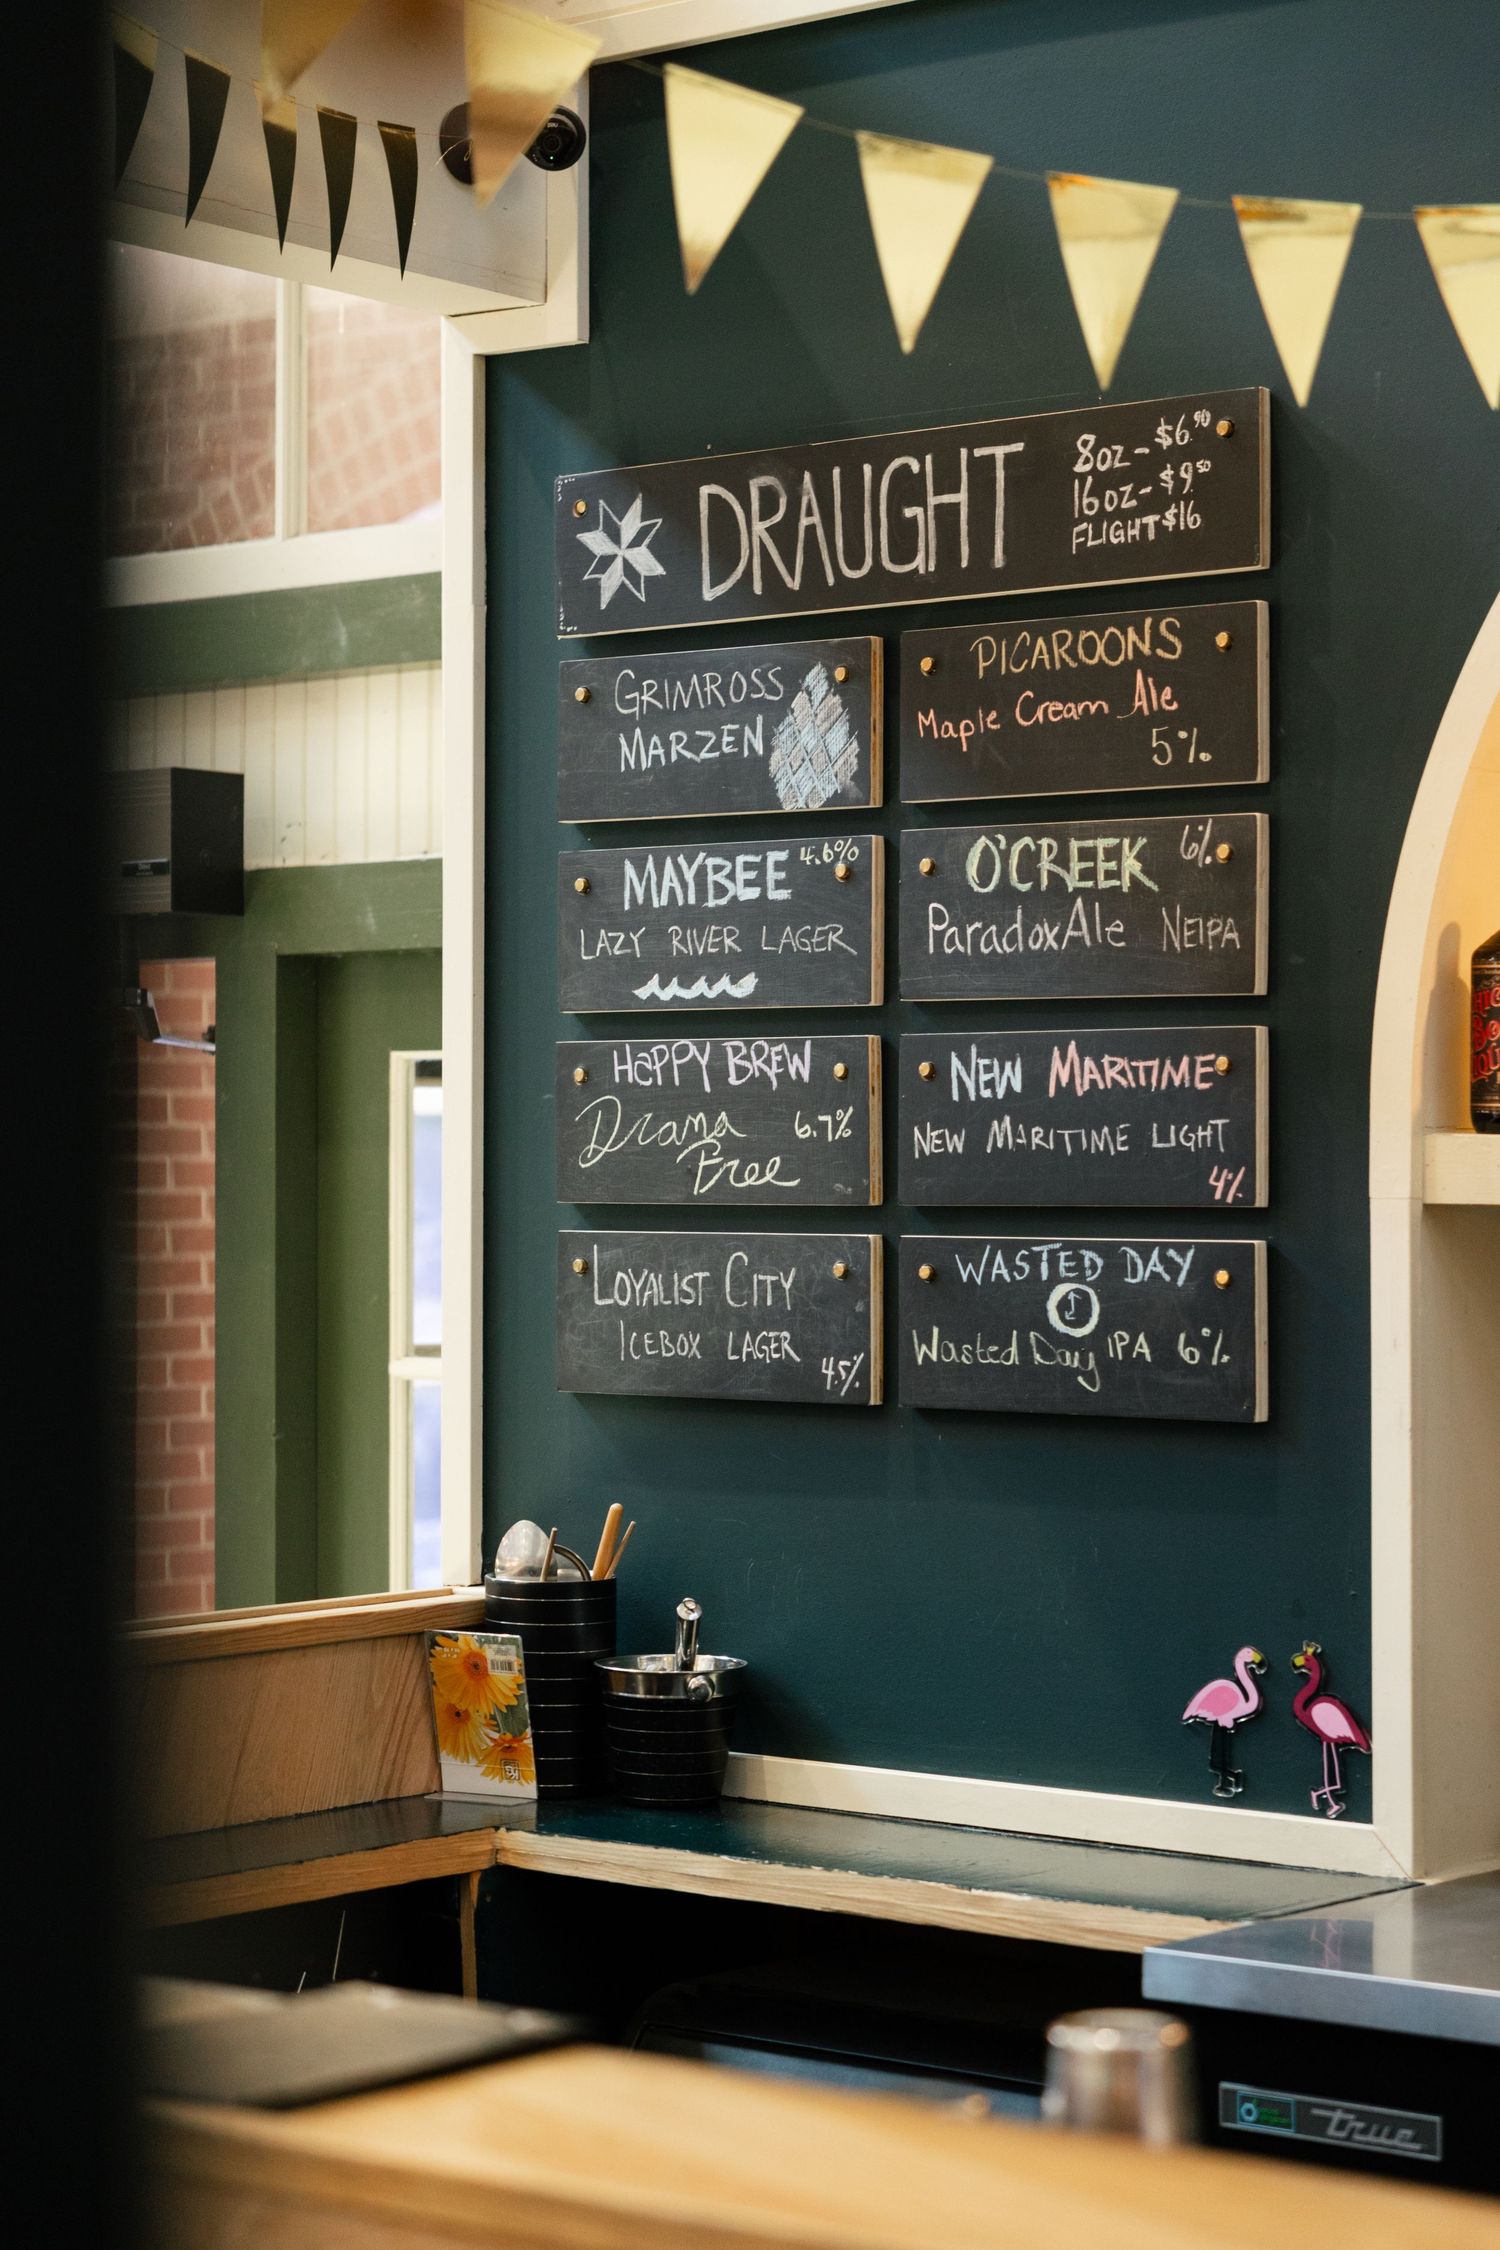 DRAUGHT
8oz - $6.90
16oz - $9.50
FLIGHT $16
GRIMROSS
MARZEN
PICAROONS
Maple Cream Ale
5%
MAYBEE 4.6%
LAZY RIVER LAGER
O'CREEK 6%
Paradox Ale NEIPA
HAPPY BREW
Drama 6.7%
Free
NEW MARITIME
NEW MARITIME LIGHT
4%
LOYALIST CITY
ICEBOX LAGER
4.5%
WASTED DAY
Wasted Day IPA 6%
true